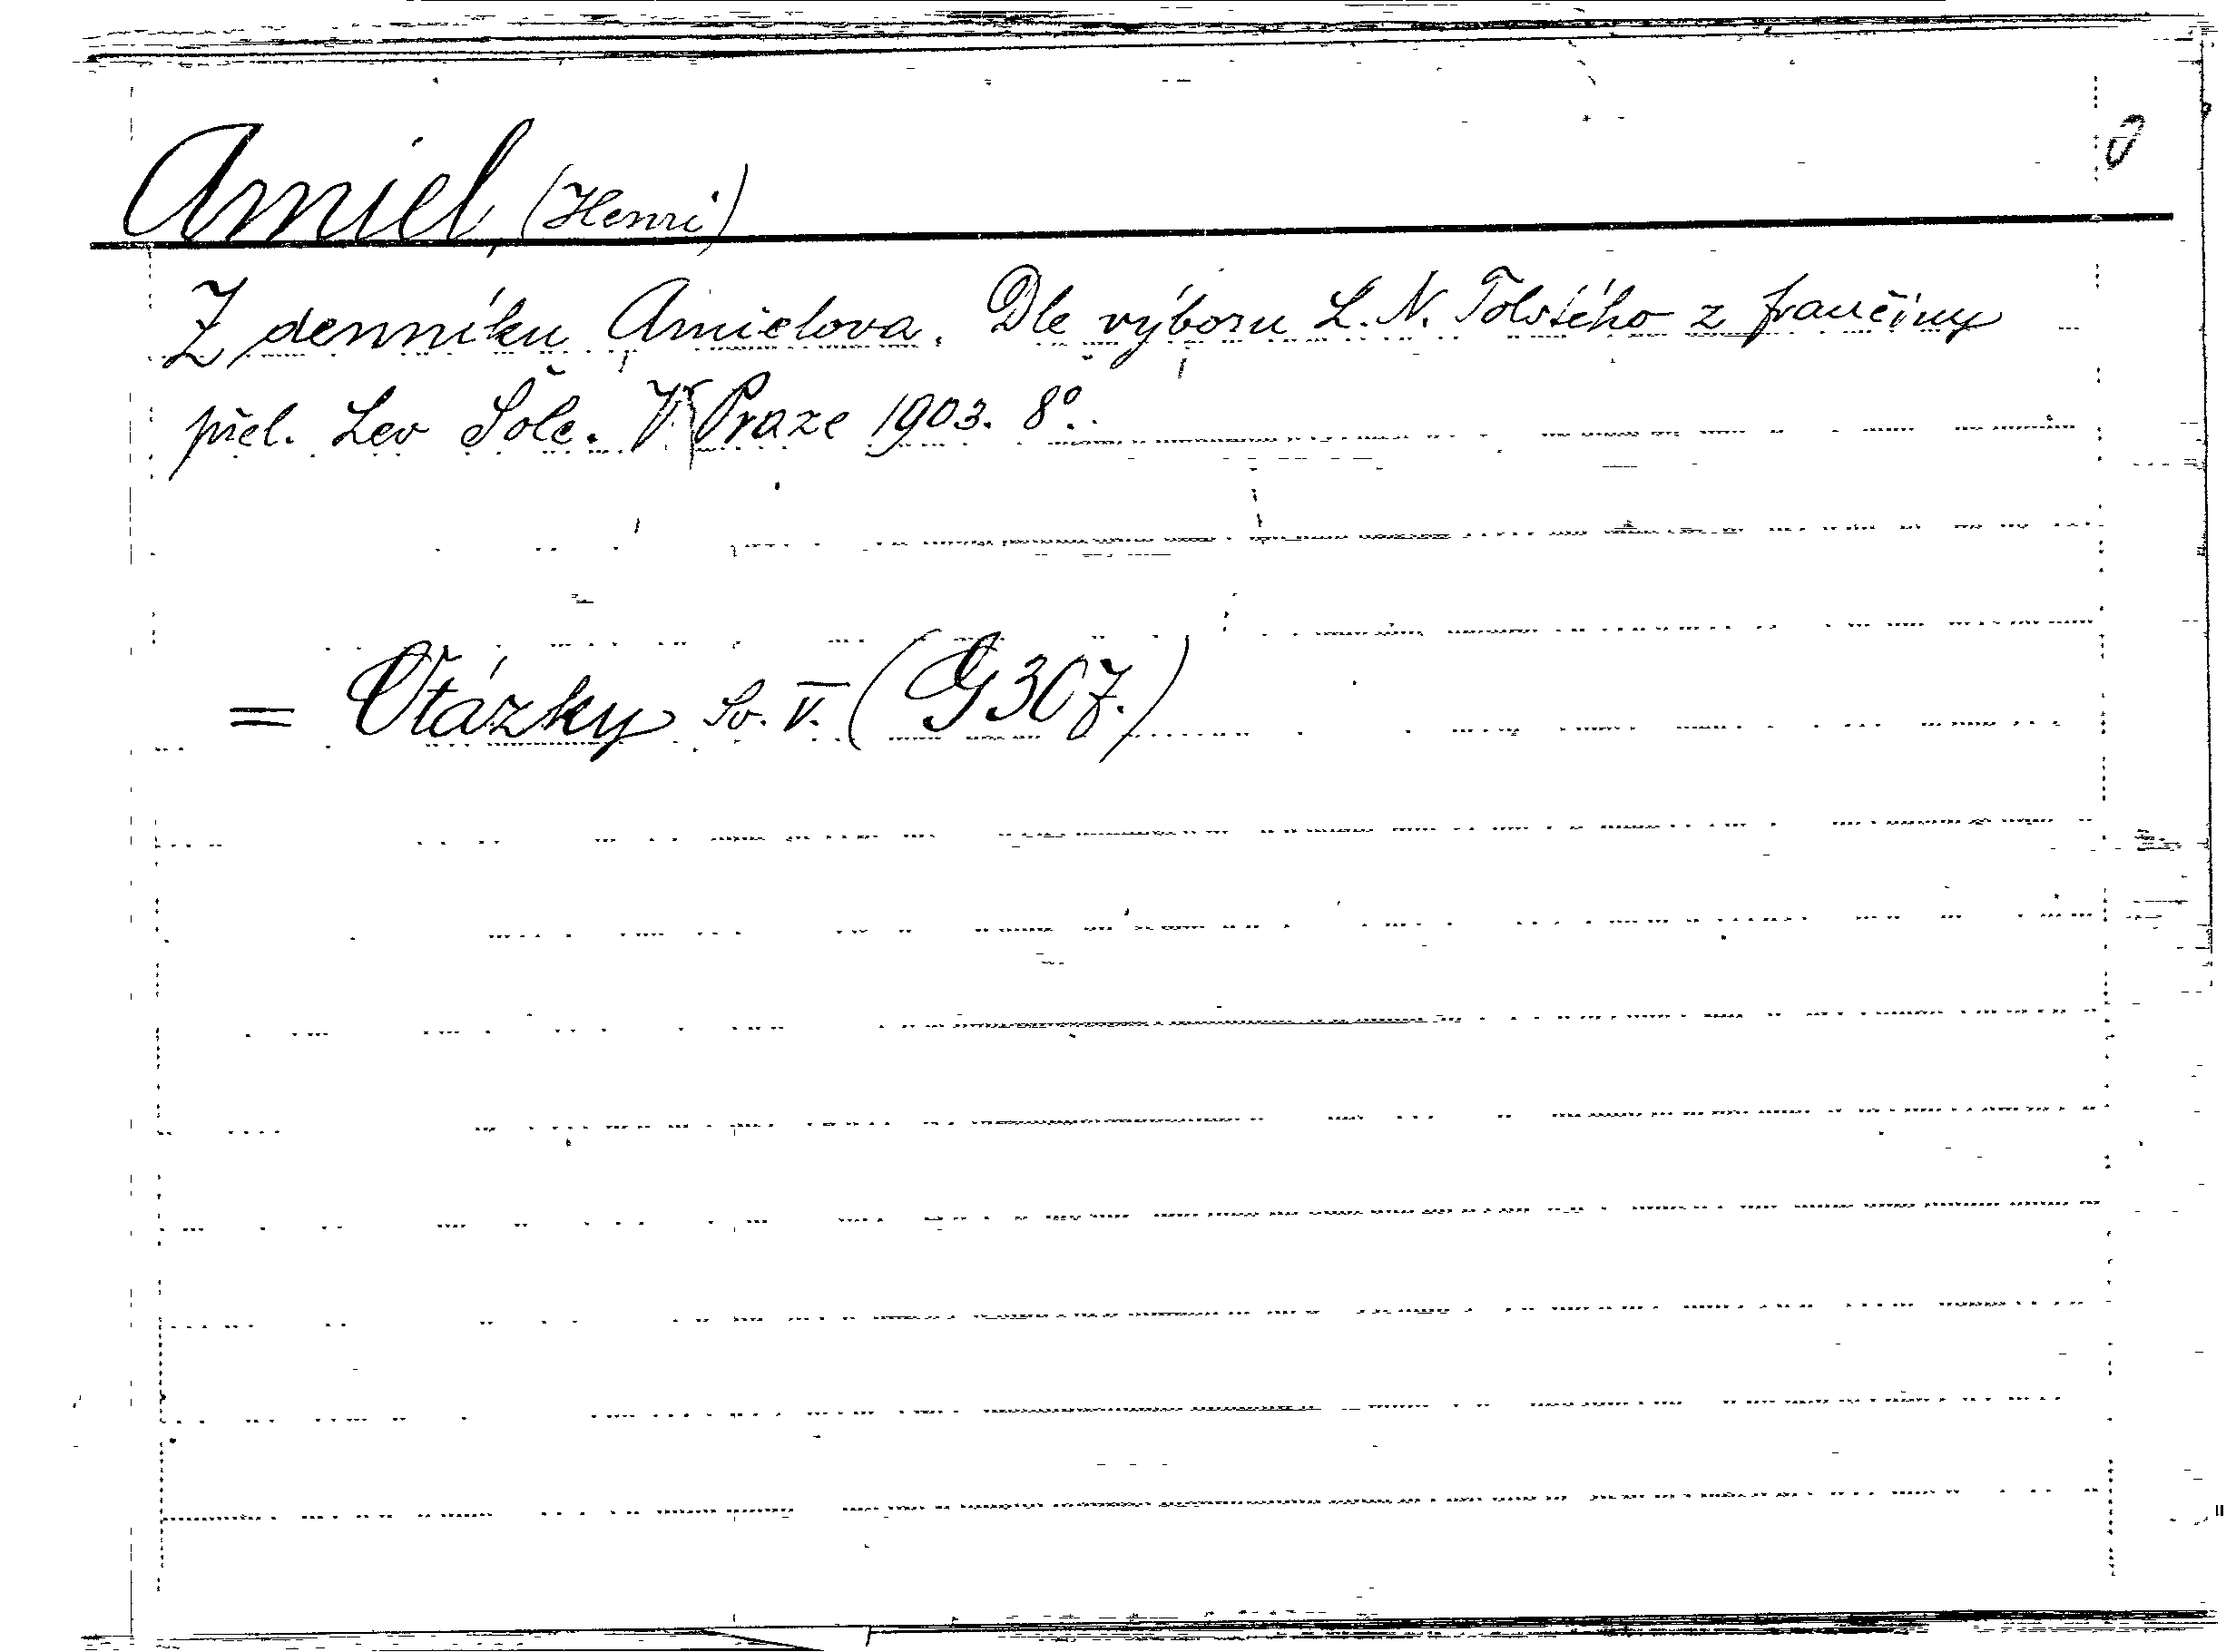 Amiel, (Henri)
Z denníku Amielova. Dle výboru L. N. Tolstého z franćiny
přel. Lev Šolc. V Praze 1903. 8°.
= Otázky Sv. V. (G 307.)